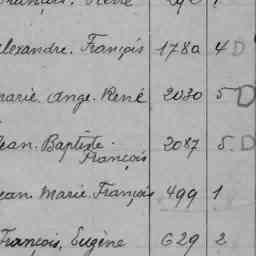 Alexandre. François 1780 4 D
Marie. Ange. René 2030 5 D
Jean. Baptiste. 2087 5. D
François
Jean. Marie. François 499 1
François, Eugène 629 2